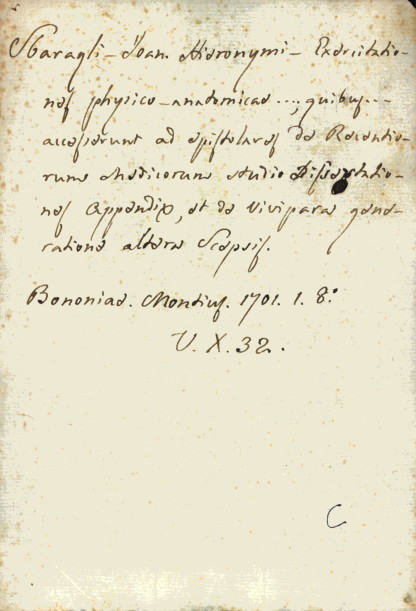 Sbaragli - Joan. Hieronymi - Exercitatio-
nes physico-anatomicae ..., quibus...
accesserunt ad epistolares de Recentio-
rum Medicorum studio Dissertatio-
nes Appendix, et de vivipara gene-
ratione altera Scepsis.
Bononiae. Montius. 1701. 1. 8.°
V. X. 32.
C